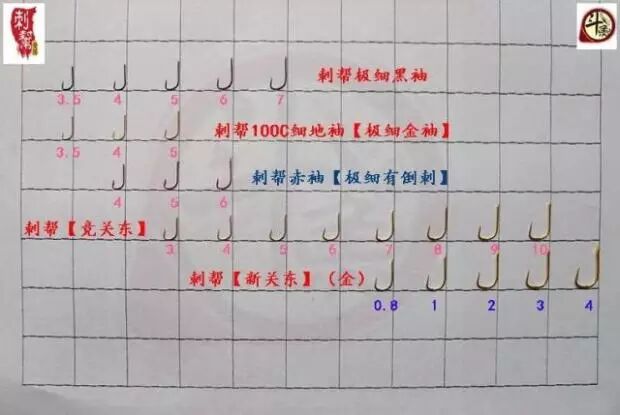 刺幫
斗
刺帮极细黑袖
3.5 4 5 6 7
刺帮100C细地袖【极细金袖】
3.5 4 5
刺帮赤袖【极细有倒刺】
4 5 6
刺帮【竞关东】
3 4 5 6 7 8 9 10
刺帮【新关东】（金）
0.8 1 2 3 4